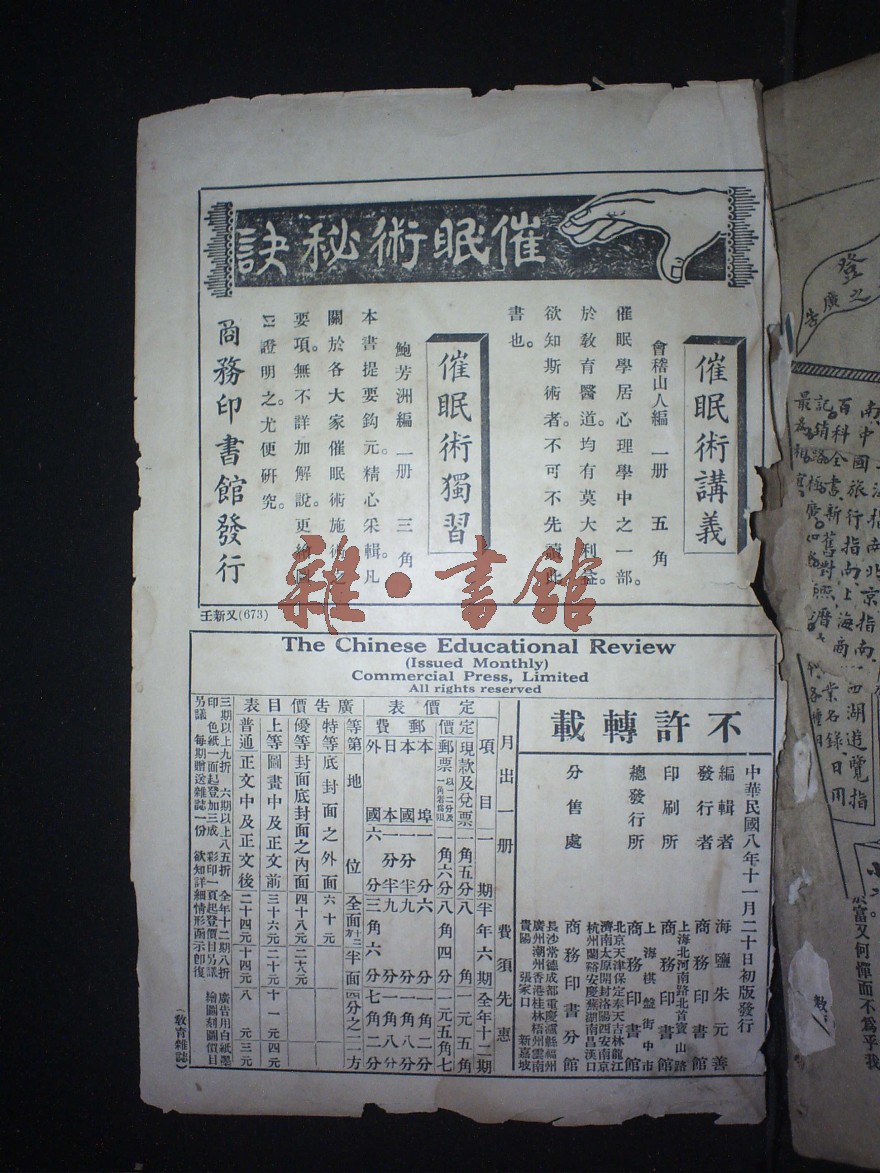 催眠術秘訣
催眠術講義
會稽山人編 一册 五角
催眠學居心理學中之一部。
於教育醫道。均有莫大利益。
欲知斯術者。不可不先讀此
書也。
催眠術獨習
鮑芳洲編 一册 三角
本書提要鈎元。精心采輯。凡
關於各大家催眠術施術之
要項。無不詳加解說。更
證明之。尤便研究。
商務印書館發行
壬新又(673)
雜·書館
The Chinese Educational Review
(Issued Monthly)
Commercial Press, Limited
All rights reserved
不許轉載
中華民國八年十一月二十日初版發行
編輯者 海鹽朱元善
發行者 商務印書館
印刷所 上海北河南路北首寶山路 商務印書館
總發行所 上海棋盤街中市 商務印書館
分售處 商務印書分館
北京天津保定奉天吉林龍江
濟南太原開封洛陽西安南京
杭州蘭谿安慶蕪湖南昌漢口
長沙常德成都重慶瀘縣福州
廣州潮州香港桂林梧州雲南
貴陽 張家口 新嘉坡
月出一册 費須先惠
定價表
項目 一期 半年六期 全年十二期
定價 現款及兌票 一角五分 八角 一元五角
郵票 一角六分 八角四分 一元五角七
郵費 本埠 一分 六分 一角二分
本國 一分半 九分 一角八分
日本 一分半 九分 一角八分
外國 六分 三角六分 七角二分
廣告價目表
等第 地位 全面 半面 四分之一
特等 底封面之外面 六十元
優等 封面底封面之內面 四十八元 二十八元
上等 圖畫中及正文前 三十六元 二十元 十一元
普通 正文中及正文後 二十四元 十四元 八元
三期以上九折 六期以上八五折 全年十二期八折 廣告用白紙墨
印 色紙一面起登加三成 彩印一頁起登價目另議 繪圖刻圖價目
另議 每期贈送雜誌一份 欲知詳細情形函示即復
(教育雜誌)
登
之
廣
告
富又何憚而不爲乎我